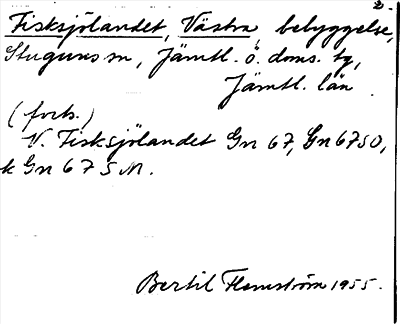 2.
Fisksjölandet, Västra bebyggelse,
Stuguns sn, Jämtl. ö. doms. tg,
Jämtl. län
(forts.)
V. Fisksjölandet Gn 67, Gn 67 SO,
k Gn 67 S M.
Bertil Flemström 1955.